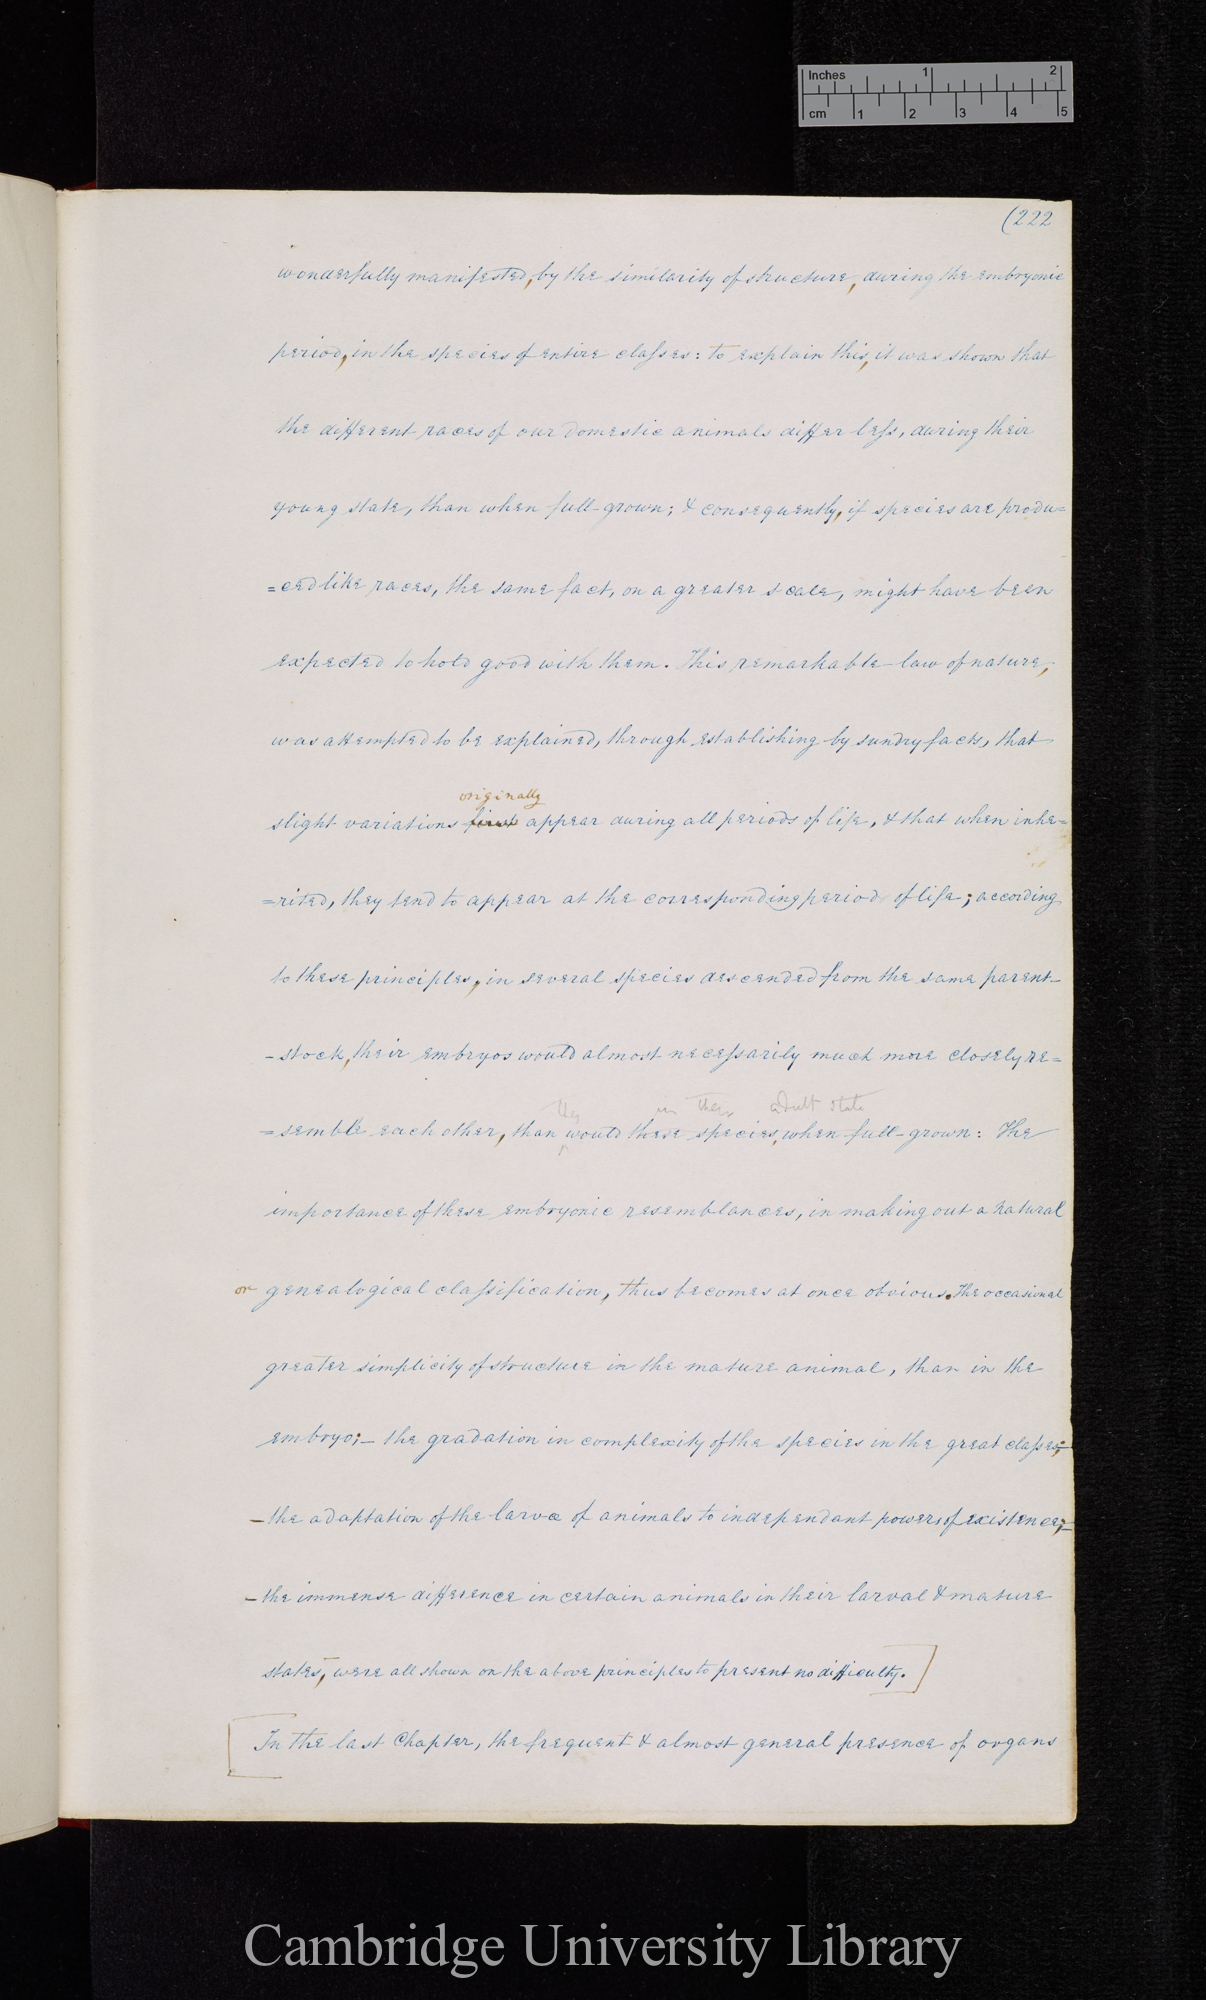 Inches 1 2
cm 1 2 3 4 5
(222
wonderfully manifested, by the similarity of structure, during the embryonic
period, in the species of entire classes: to explain this, it was shown that
the different races of our domestic animals differ less, during their
young state, than when full-grown; & consequently, if species are produ=
=ced like races, the same fact, on a greater scale, might have been
expected to hold good with them. This remarkable law of nature,
was attempted to be explained, through establishing by sundry facts, that
originally
slight variations first appear during all periods of life, & that when inhe=
=rited, they tend to appear at the corresponding periods of life; according
to these principles, in several species descended from the same parent-
-stock, their embryos would almost necessarily much more closely re=
they in their adult state
=semble each other, than would these species, when full-grown: The
importance of these embryonic resemblances, in making out a natural
or genealogical classification, thus becomes at once obvious. The occasional
greater simplicity of structure in the mature animal, than in the
embryo;- the gradation in complexity of the species in the great classes;-
- the adaptation of the larvæ of animals to independant powers of existence;-
- the immense difference in certain animals in their larval & mature
states, were all shown on the above principles to present no difficulty.]
[In the last Chapter, the frequent & almost general presence of organs
Cambridge University Library